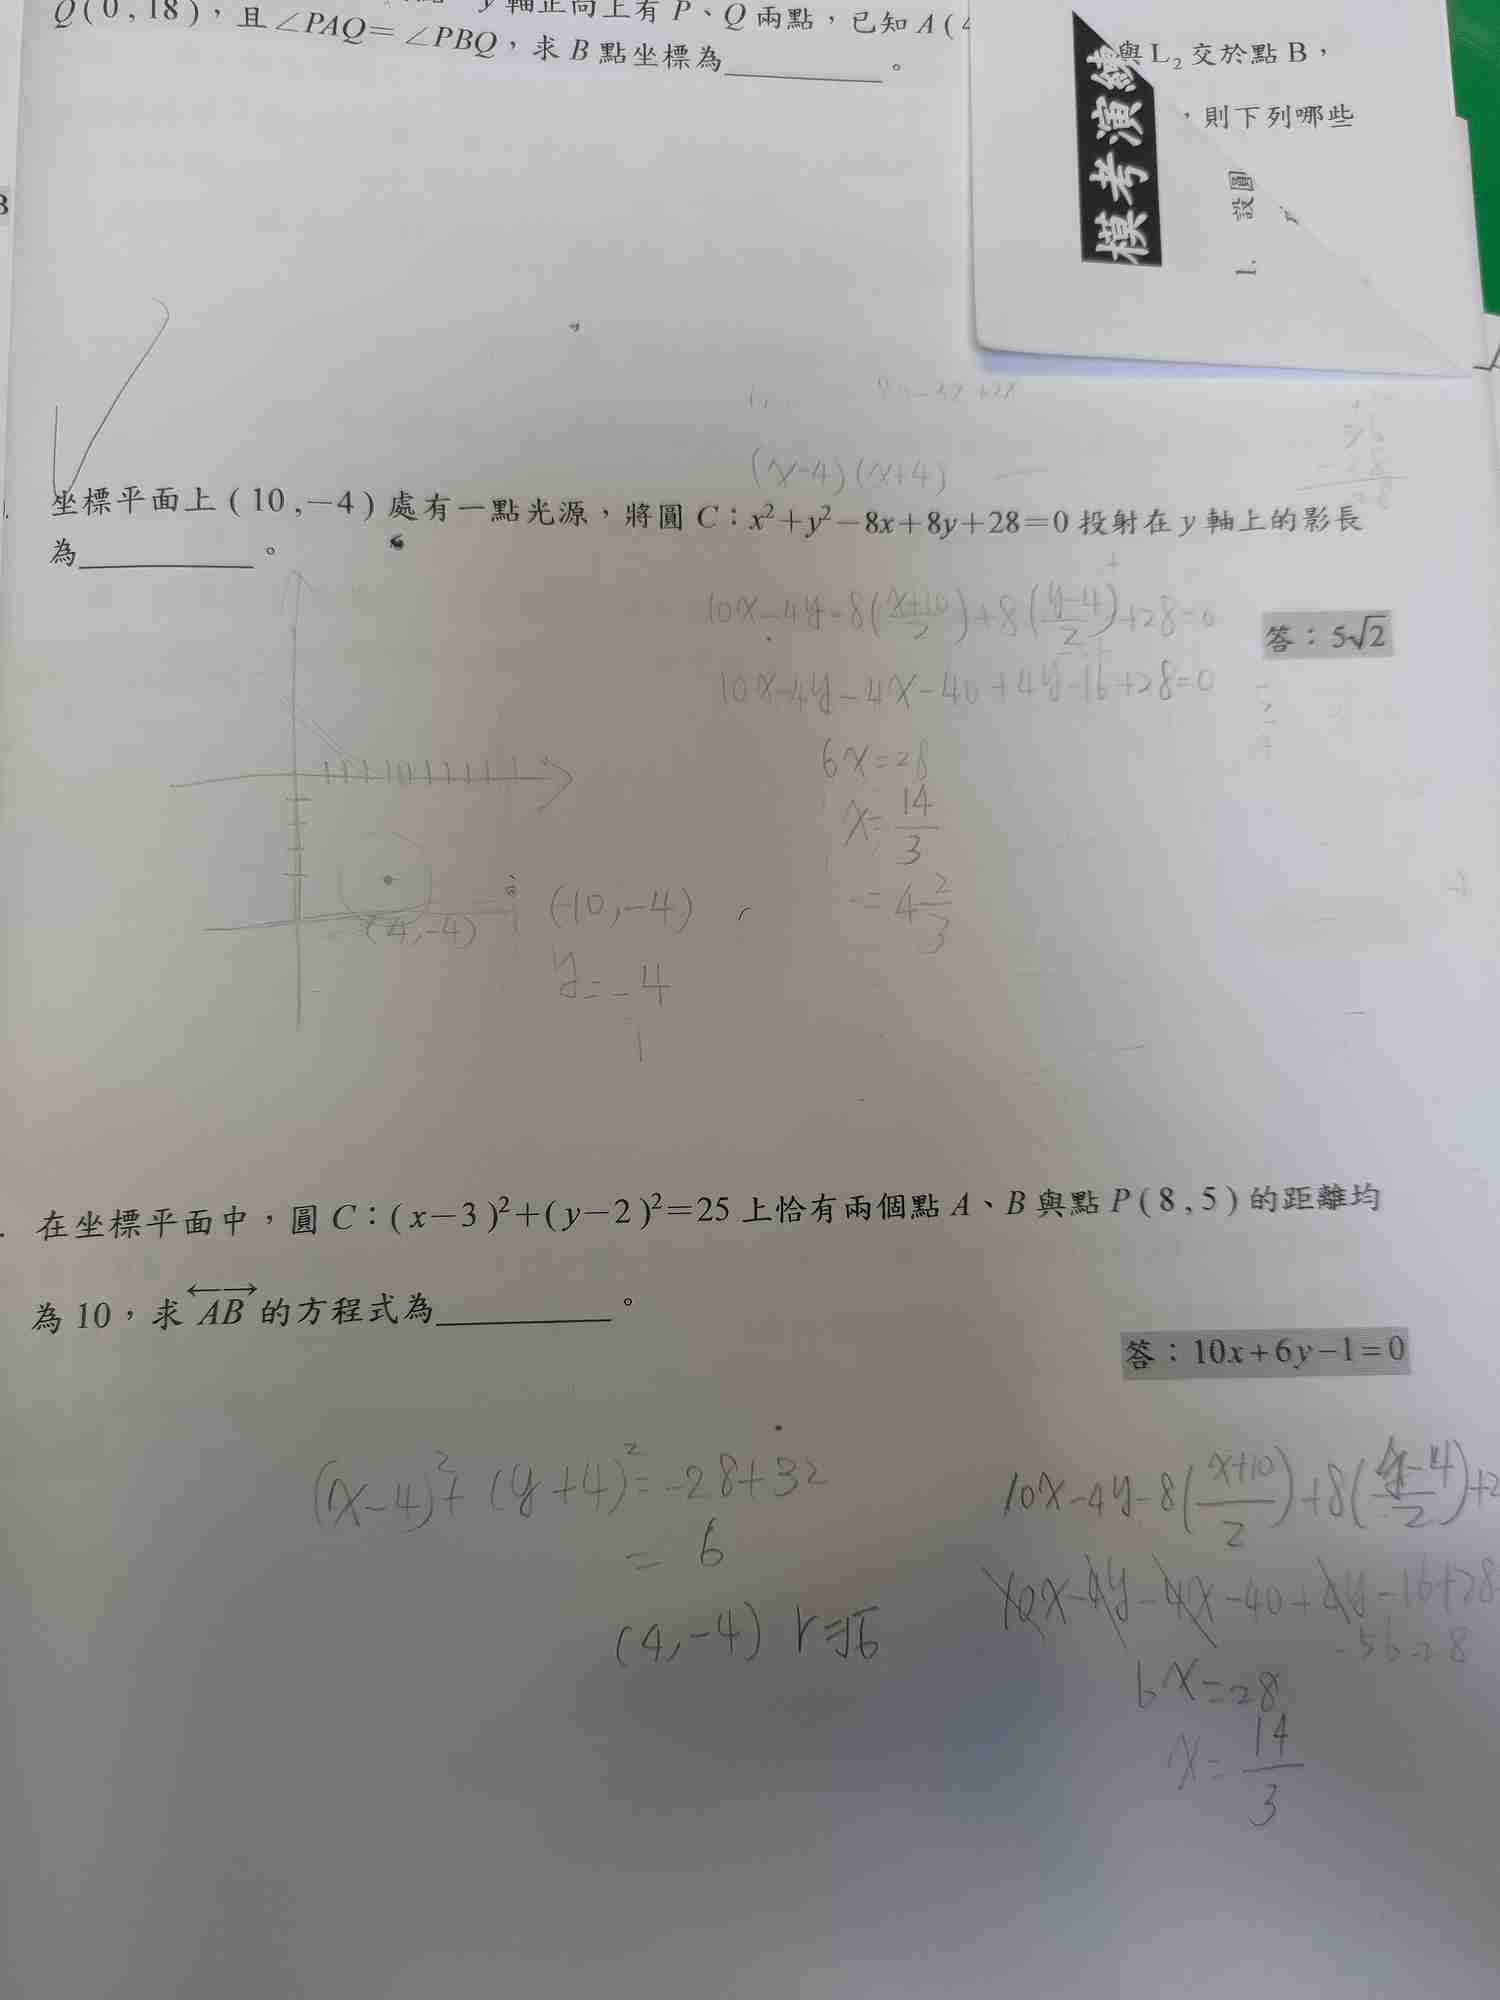 軸正向上有 P、Q 兩點，已知 A(4
Q(0,18)，且∠PAQ=∠PBQ，求 B 點坐標為________。
與 L₂ 交於點 B，
，則下列哪些
模考演練
1. 設圓
(x-4)(x+4)
坐標平面上(10,-4)處有一點光源，將圓 C：x²+y²-8x+8y+28=0 投射在 y 軸上的影長
為________。
答：5√2
10x-4y-8(x+10/2)+8(y-4/2)+28=0
10x-4y-4x-40+4y-16+28=0
6x=28
x=14/3
=4 2/3
(4,-4)
(-10,-4)
y=-4
在坐標平面中，圓 C：(x-3)²+(y-2)²=25 上恰有兩個點 A、B 與點 P(8,5)的距離均
為 10，求 AB 的方程式為________。
答：10x+6y-1=0
(x-4)²+(y+4)²=-28+32
=6
(4,-4) r=√6
10x-4y-8(x+10/2)+8(y-4/2)+2
10x-4y-4x-40+4y-16+28
-56 28
6x=28
x=14/3